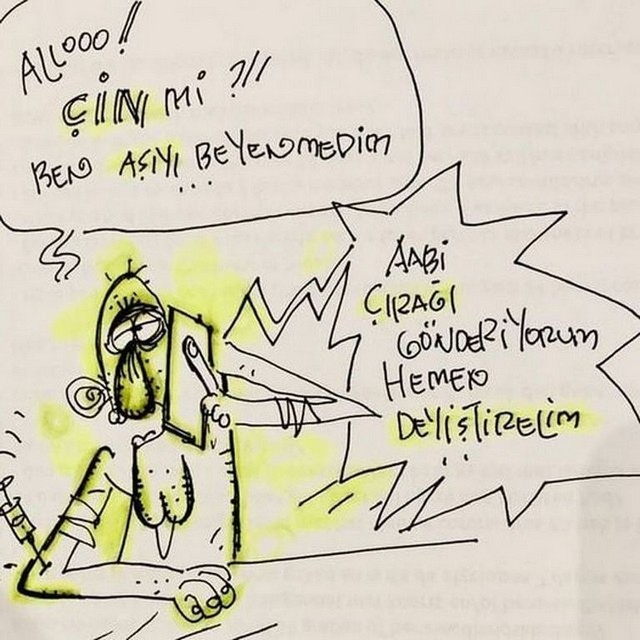 ALLOOO!
ÇİN Mİ ?!!
BEN AŞIYI BEYENMEDİM
AABİ
ÇIRAĞI
GÖNDERİYORUM
HEMEN
DEYİŞTİRELİM